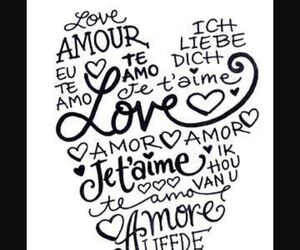 Love
AMOUR
ICH
LIEBE
DICH
EU
TE
AMO
TE
AMO
Je t'aime
Love
AMOR AMOR
Je t'aime
IK
HOU
VAN U
te amo
Amore
LIEFDE